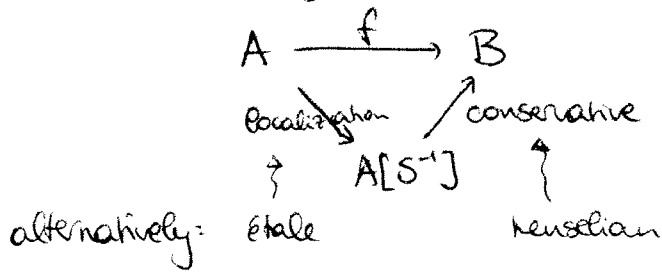 A f B
localization conservative
A[S⁻¹]
alternatively: étale henselian